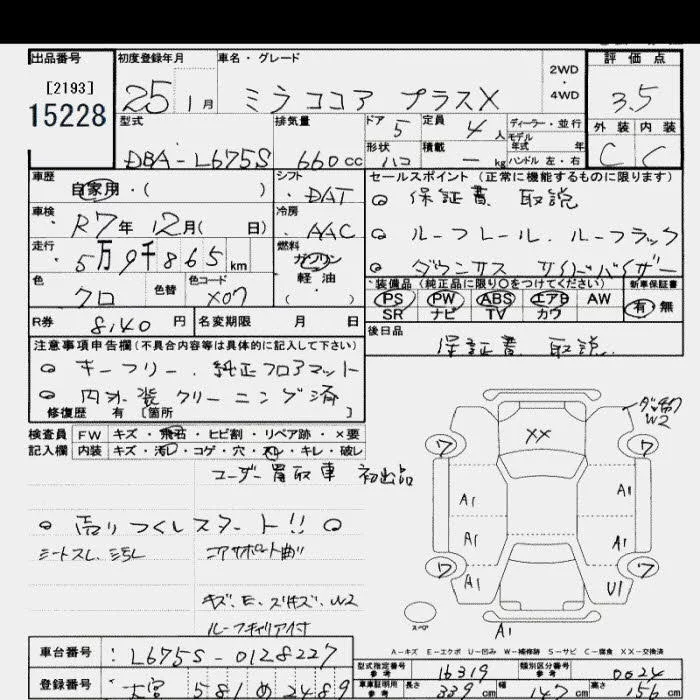 出品番号
[2193]
15228
初度登録年月
25 1月
車名・グレード
ミラココア プラスX
2WD
・
4WD
評価点
3.5
型式
DBA-L675S
排気量
660cc
ドア 5
定員 4人
ディーラー・並行
モデル年式 年
外装 内装
C C
形状 ハコ
積載 - kg
ハンドル 左・右
車歴
自家用・( )
シフト
・DAT
セールスポイント (正常に機能するものに限ります)
保証書 取説
車検
R7年 12月( 日)
冷房
・AAC
ルーフレール. ルーフラック
走行
5万9千865km
燃料
ガソリン
軽・油
( )
ダウンサス サイドバイザー
色
クロ
色替
色コード
X07
装備品 (純正品に限り○をつけてください) 新車保証書
PS PW ABS エアB AW
SR ナビ TV カワ
有・無
R券 8140円
名変期限 月 日
後日品
保証書 取説
注意事項申告欄(不具合内容等は具体的に記入して下さい)
キーフリー. 純正フロアマット
内外装クリーニング済
修復歴 有 [箇所 ]
検査員 FW キズ・飛石・ヒビ割・リペア跡・×要
記入欄 内装 キズ・汚れ・コゲ・穴・スレ・キレ・破レ
ユーザー買取車 初出品
売りつくしスタート!!
シートスレ.
コアサポート曲り
キズ.E.ズキズ.W2
ルーフキャリア付
W2
XX
ワ ワ
A1 A1
A1 A1
ワ ワ
A1 U1
スペア
A1
A-キズ E-エクボ U-凹み W-補修跡 S-サビ C-腐食 XX-交換済
車台番号 : L675S-0128227
型式指定番号 参考 16319
類別区分番号 参考 0024
登録番号 大宮 581 め 2489
車庫証明用 参考 長さ 339cm 幅 147cm 高さ 156cm